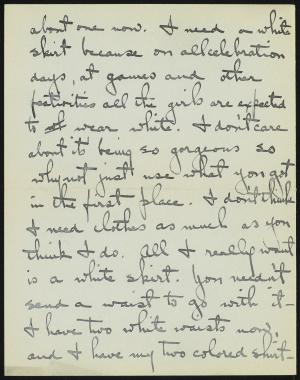 about one now. I need a white
skirt because on all celebration
days, at games and other
festivities all the girls are expected
to wear white. I don't care
about its being so gorgeous so
why not just use what you got
in the first place. I don't think
I need clothes as much as you
think I do. All I really want
is a white skirt. You needn't
send a waist to go with it -
I have two white waists now,
and I have my two colored shirt-